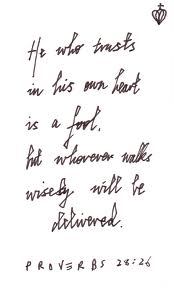 He who trusts
in his own heart
is a fool,
but whoever walks
wisely will be
delivered.
PROVERBS 28:26